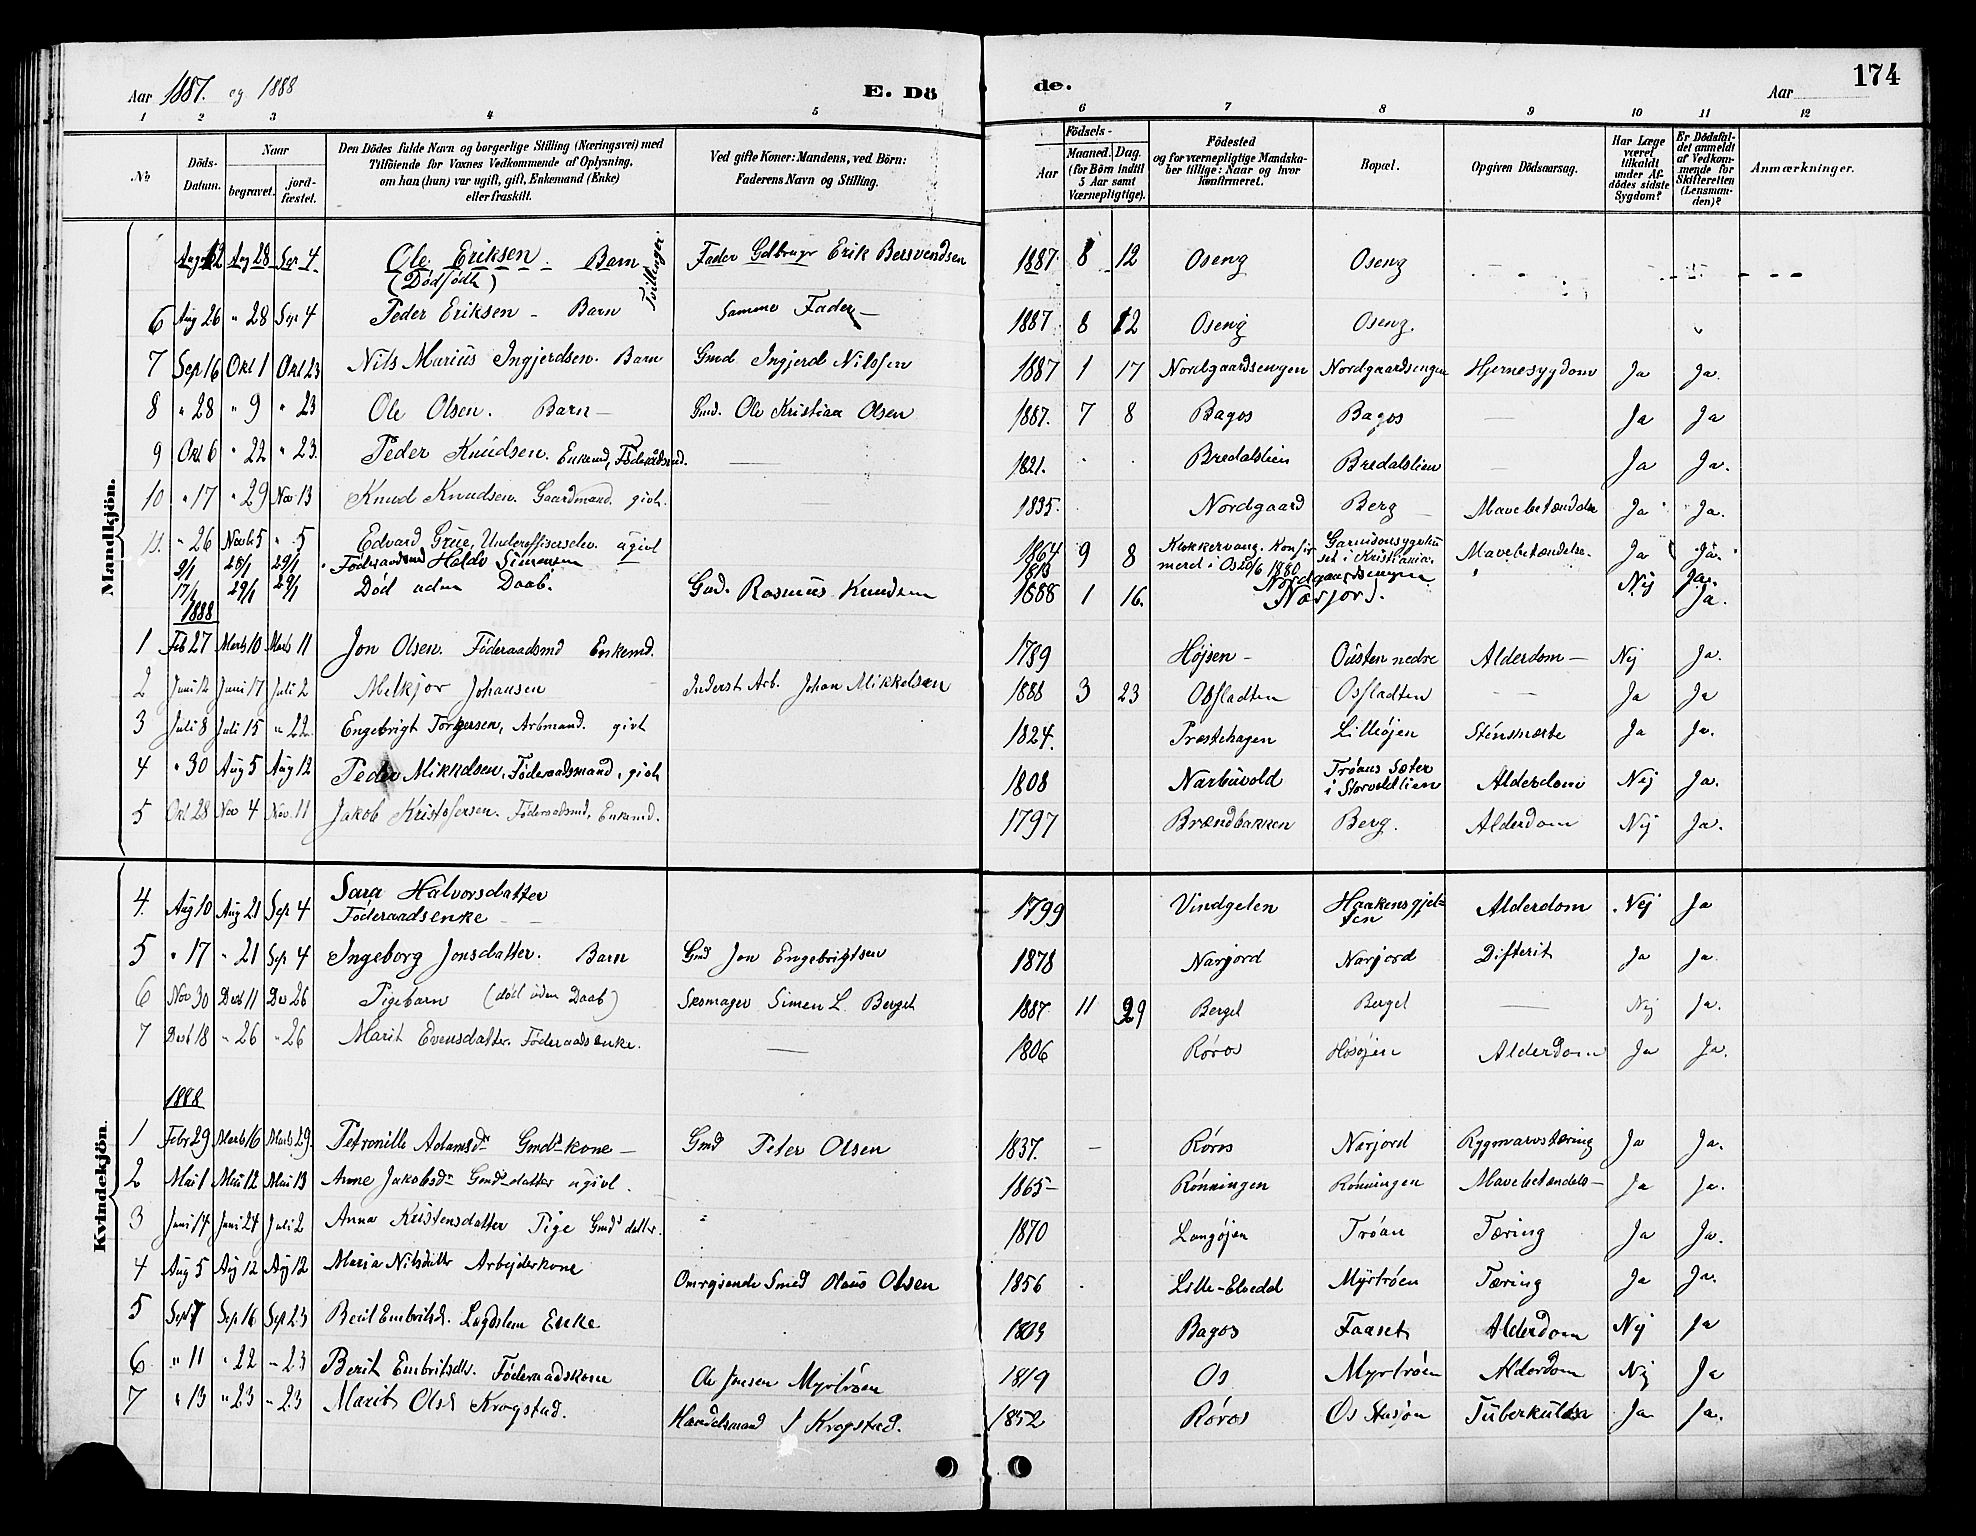 Aar 1887. og 1888 E. Dö de. Aar 174
1 2 3 4 5 6 7 8 9 10 11 12
No. Döds-Datum. Naar begravet. jord-fæstet. Den Dödes fulde Navn og borgerlige Stilling (Næringsvei) med Tilföiende for Voxnes Vedkommende af Oplysning, om han (hun) var ugift, gift, Enkemand (Enke) eller fraskilt. Ved gifte Koner: Mandens, ved Börn: Faderens Navn og Stilling. Födsels- Aar Maaned. Dag. (for Börn indtil 5 Aar samt Værnepligtige). Födested og for værnepligtige Mandskaber tillige: Naar og hvor konfirmeret. Bopæl. Opgiven Dödsaarsag. Har Læge været tilkaldt under Afdödes sidste Sygdom? Er Dödsfaldet anmeldt af Vedkommende for Skifteretten (Lensmanden)? Anmærkninger.
Mandkjön.
Aug 12 Aug 28 Sep 4 Ole Eriksen. Barn Fader Gdbruger Erik Bersvendsen 1887. 8 12 Oseng Oseng
(Dødfødt) Tvillinger.
6 Aug 26 " 28 Sep 4 Peder Eriksen - Barn Samme Fader - 1887 8 12 Oseng Oseng. "
7 Sep 16 Okt 1 Okt 23 Nils Marius Ingjerdsen. Barn Gmd Ingjerd Nilssen 1887 1 17 Nordgaardsengen Nordgaardsengen Hjernesygdom Ja Ja.
8 " 28 " 9 " 23 Ole Olsen. Barn - Gmd. Ole Kristian Olsen 1887. 7 8 Bagos Bagos - Ja Ja
9 Okt 6 " 22 " 23. Peder Knudsen. Enkemd, Føderaadsmd. - 1821. Bredalslien Bredalslien - Ja Ja.
10 " 17 " 29 Nov 13 Knud Knudsen. Gaardmand. givt. 1835. Nordgaard Berg Mavebetændelse Ja Ja.
11. " 26 Novb 5 " 5 Edvard Grue, Underoffiserselev. ugivt 1864 9 8 Klokkervang. Konfirmeret i Os 20/6 1880 Garnisonsygehuset i Kristiania. Mavebetændelse. Ja Ja.
9/1 28/1 29/1 Føderaadsmd Haldo Simensen Nordgaardsengen Nej Ja.
29/1 29/1 Død uden Daab. Gmd. Rasmus Knudsen 1888 1 16. Narjord. Ja.
1888
1 Feb 27 Marts 10 Marts 11 Jon Olsen. Føderaadsmd Enkemd. 1789 Højsen - Ousten nedre Alderdom - Nej Ja.
2 Juni 12 Juni 17 Juli 2 Melkjor Johansen Inderst Arb. Johan Mikkelsen 1888 3 23 Osfladten Osfladten - Ja Ja
3 Juli 8 Juli 15 " 22 Engebrigt Torgersen, Arbmand. givt 1824. Præstehagen Lilleøjen Stensmerte Ja Ja.
4 " 30 Aug 5 Aug 12 Peder Mikkelsen, Føderaadsmand, givt 1808 Narbuvold Trøans Sæter i Storvoldlien Alderdom Nej Ja.
5 Okt 28 Nov 4 Nov. 11 Jakob Kristofersen. Føderaadsmd, Enkemd. 1797 Brændbakken Berg. Alderdom Nej Ja.
Kvindekjön.
4. Aug 10 Aug 21 Sep 4 Sara Halvorsdatter Føderaadsenke - 1799 Vindgelen Haakensgjelten Alderdom Nej Ja
5 " 17 " 21 Sep 4 Ingeborg Jonsdatter. Barn Gmd Jon Engebrigtsen 1878 Narjord Narjord Difterit Ja Ja.
6 Nov 30 Desb 11 De 26 Pigebarn (død uden Daab) Skomager Simen L. Berget 1887. 11 29 Berget Berget - Nej Ja.
7 Desb 18 " 26 " 26 Marit Evensdatter. Føderaadsenke. - 1806 Røros Hosøjen Alderdom Ja Ja.
1888
1 Febr 29 Marts 16 Marts 29. Petronille Adamsdr Gmds kone - Gmd Peter Olsen 1837. - Røros Narjord Rygmarvstæring Ja Ja.
2 Mai 1 Mai 12 Mai 13 Anne Jakobsdr Gmds datter ugivt. 1865 - Rønningen Rønningen Mavebetændels - Ja Ja.
3 Juni 14 Juni 24 Juli 2 Anna Kristensdatter Pige Gmds datter. 1870 Langøjen Trøan Tæring Ja Ja.
4 Aug 5 Aug 12 Aug 12 Maria Nilsdatter Arbejderkone Omrejsende Smed Klaus Olsen 1856 Lille-Elvedal Myrtrøen Tæring Ja Ja.
5 Sept 7 Sep 16 Sep 23 Berit Embritsd. Lægdslem Enke 1809 Bagos Faaset Alderdom Nej Ja
6 " 11 " 22 " 23 Berit Embritsdtr. Føderaadskone Ole Jonsen Myrtrøen 1819 Os Myrtrøen Alderdom Nej Ja
7 " 13 " 23 " 23 Marit Olsd Krogstad. Handelsmand J Krogstad. 1852 Røros Os Stasjon Tuberkulose Ja Ja.